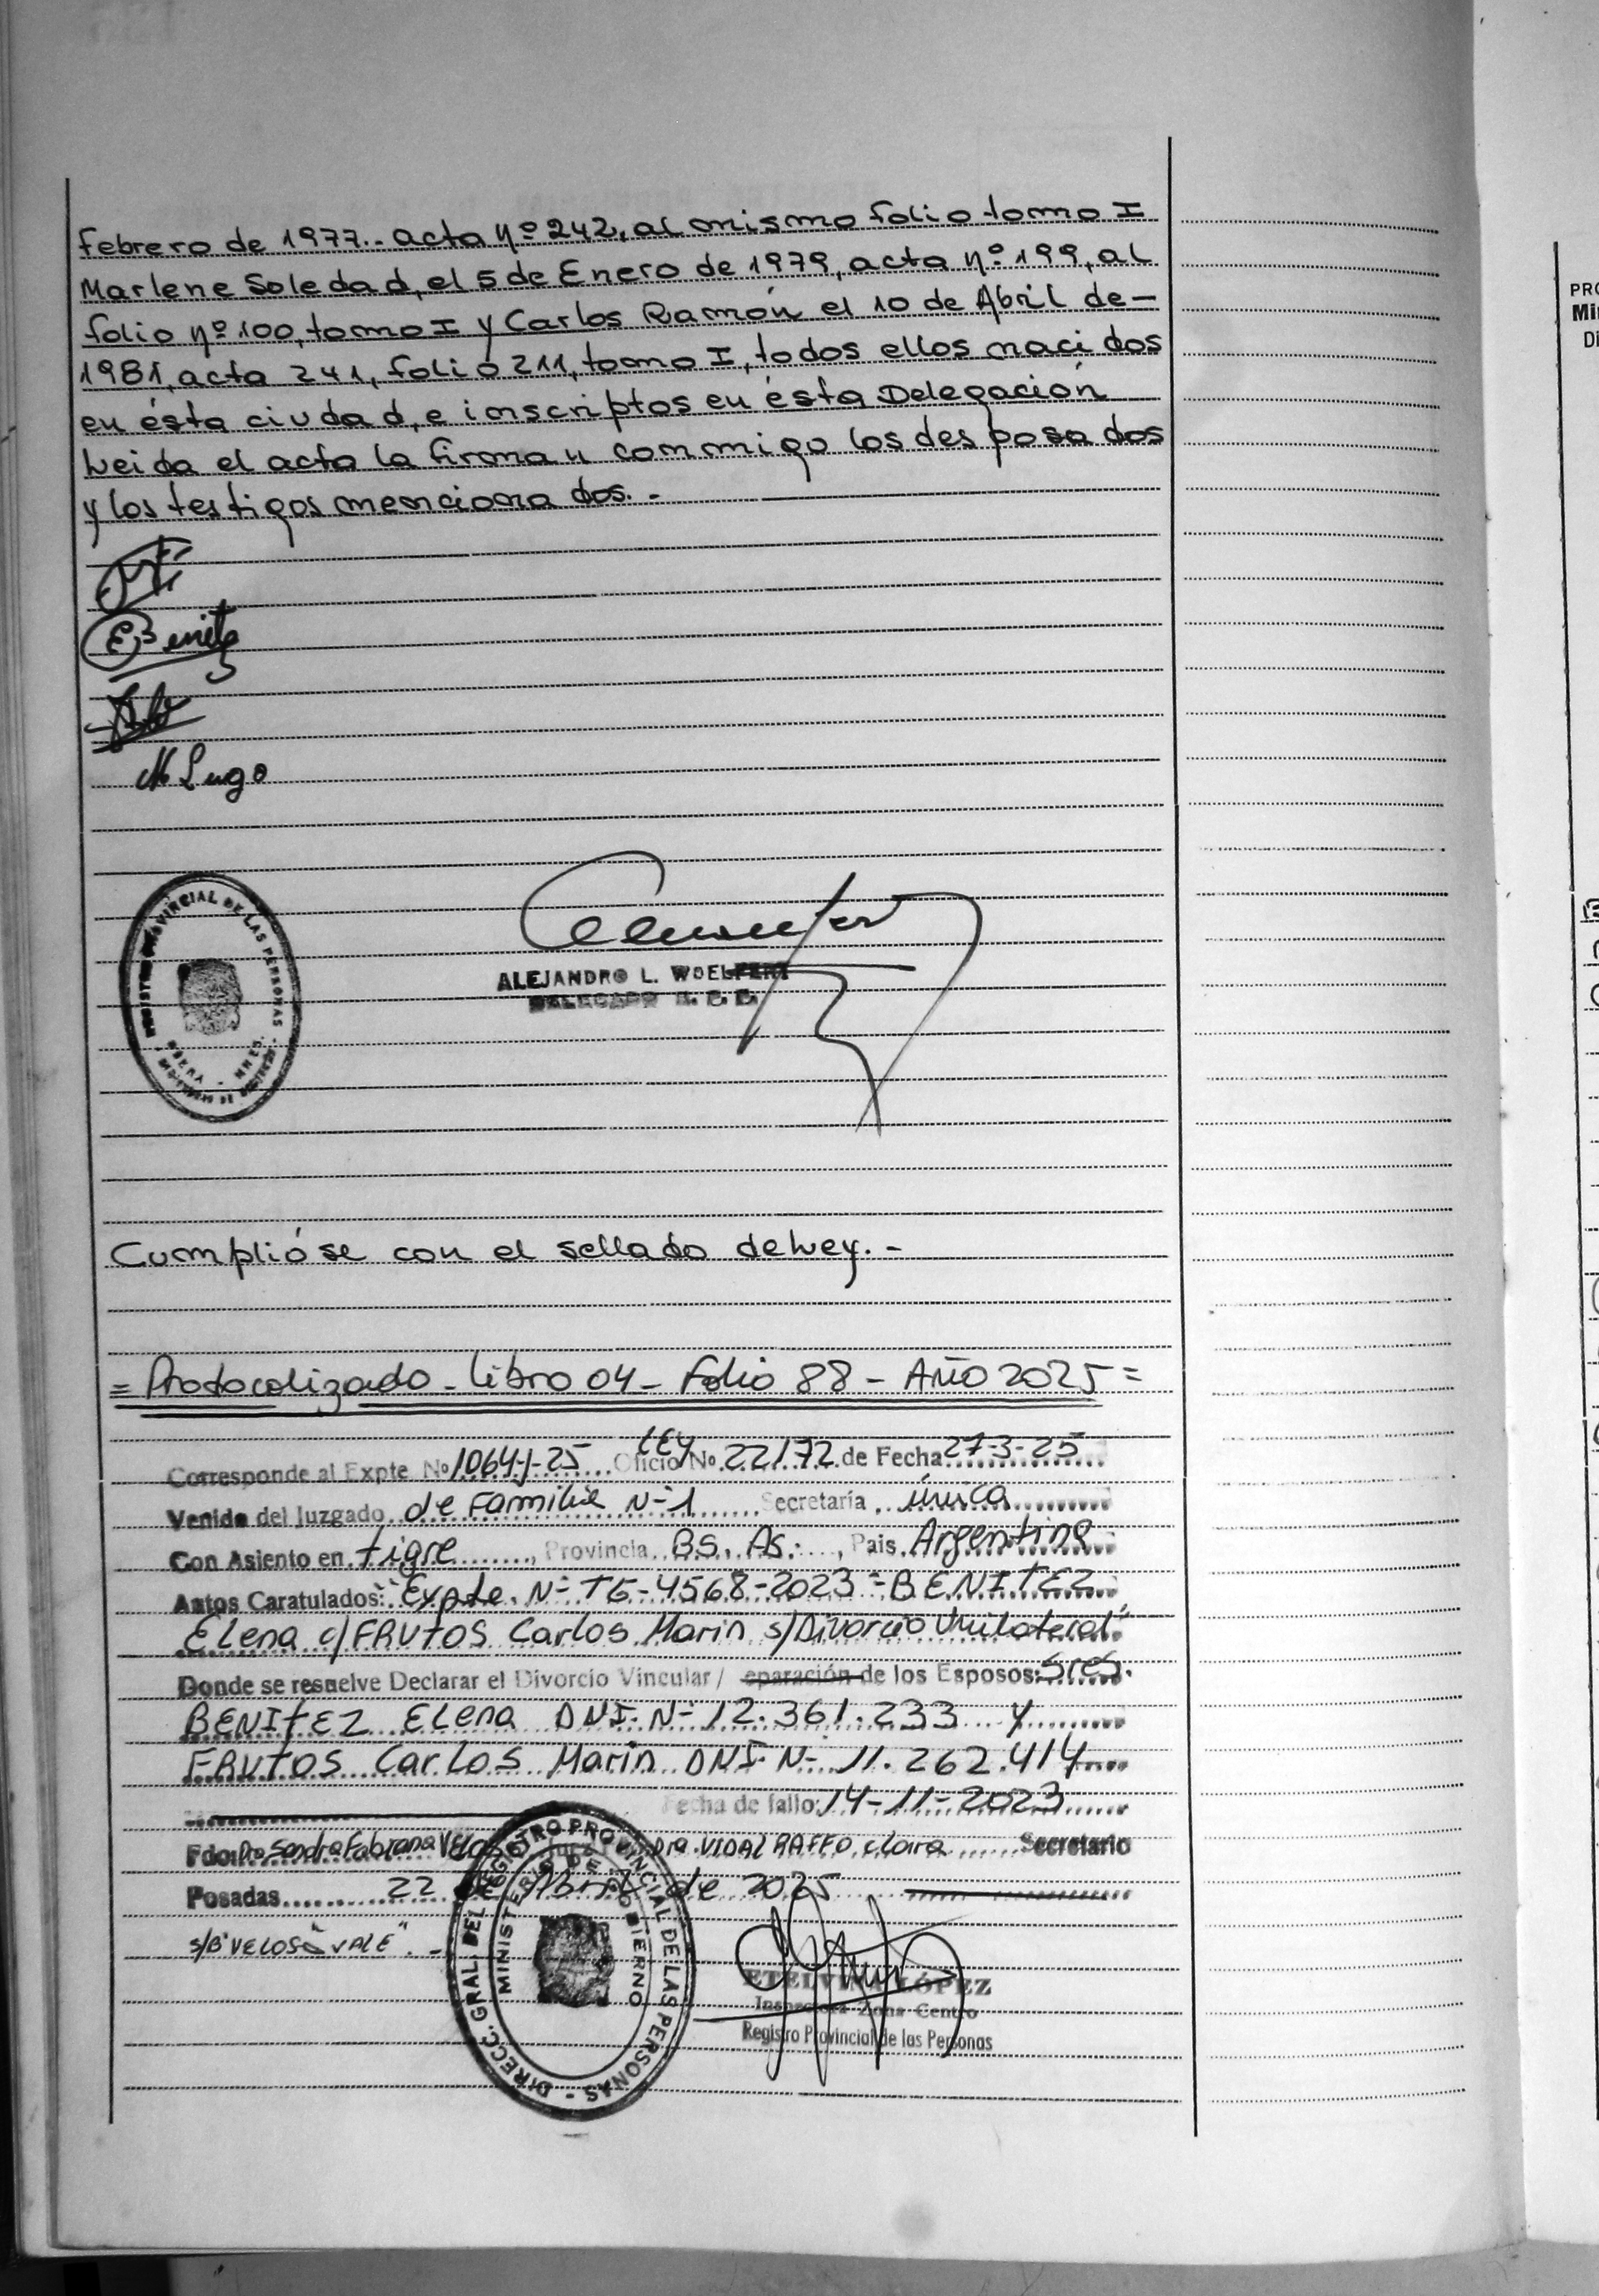 febrero de 1977.- acta nº 242, al mismo folio tomo I
Marlene Soledad, el 5 de Enero de 1979, acta nº 199, al
folio nº 100, tomo I y Carlos Ramón el 10 de Abril de-
1981, acta 241, folio 211, tomo I, todos ellos nacidos
en ésta ciudad, e inscriptos en ésta Delegación
Leida el acta la firman conmigo los desposados
y los testigos mencionados.-
E Benitez
M Lugo
REGISTRO PROVINCIAL DE LAS PERSONAS
OBERA - MNES.
ALEJANDRO L. WOELFERT
DELEGADO
Cumplióse con el sellado de Ley.-
= Protocolizado - Libro 04 - Folio 88 - Año 2025 =
Corresponde al Expte Nº 1064-J-25 Oficio LEY No. 22172 de Fecha 27-3-25
Venido del Juzgado de Familia N-1 Secretaría única
Con Asiento en tigre, Provincia BS. AS., Pais Argentina
Autos Caratulados: "Expte. N- TG-4568-2023 - BENITEZ
Elena c/ FRUTOS Carlos Marin s/Divorcio Unilateral"
Donde se resuelve Declarar el Divorcio Vincular / eparación de los Esposos: Sres.
BENITEZ Elena DNI. N- 12.361.233 y
FRUTOS Carlos Marin DNI N- 11.262.414
Fecha de fallo: 14-11-2023
Fdo: Dra Sandra Fabiana Dra. VIDAL RAFFO, Clara Secretario
Posadas 22 de Abril de 2025
s/B "VELOSO" VALE".-
DIRECC. GRAL. DEL REGISTRO PROVINCIAL DE LAS PERSONAS -
MINISTERIO DE GOBIERNO
ETELVINA LÓPEZ
Inspectora Zona Centro
Registro Provincial de las Personas
PRO
Mi
Di